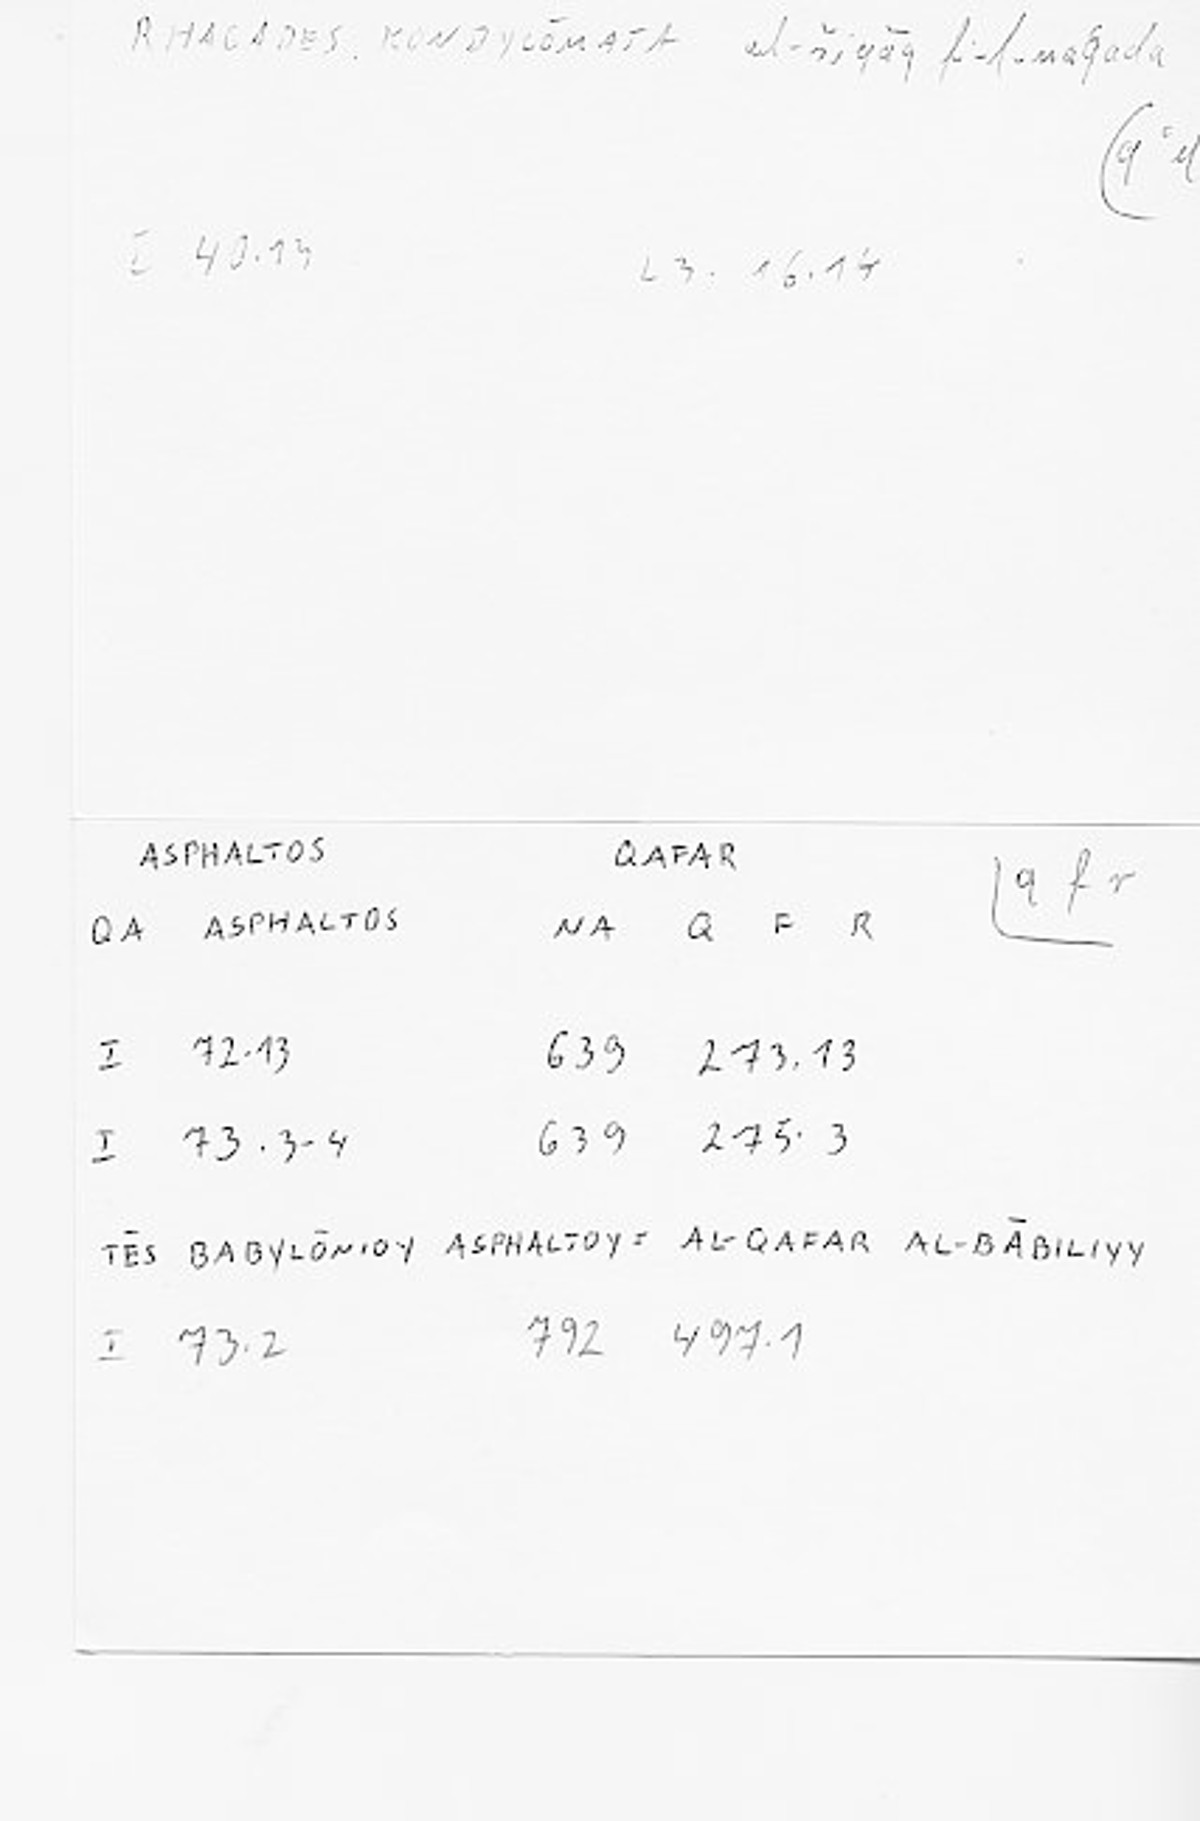 RHAGADES. KONDYLŌMATA al-šiqāq fi-l-maqʿada
(qʿd
I 40.13 23. 16.14
ASPHALTOS QAFAR
q f r
QA ASPHALTOS NA Q F R
I 72.13 639 273.13
I 73.3-4 639 275.3
TĒS BABYLŌNIOY ASPHALTOY= AL-QAFAR AL-BĀBILIYY
I 73.2 792 497.1